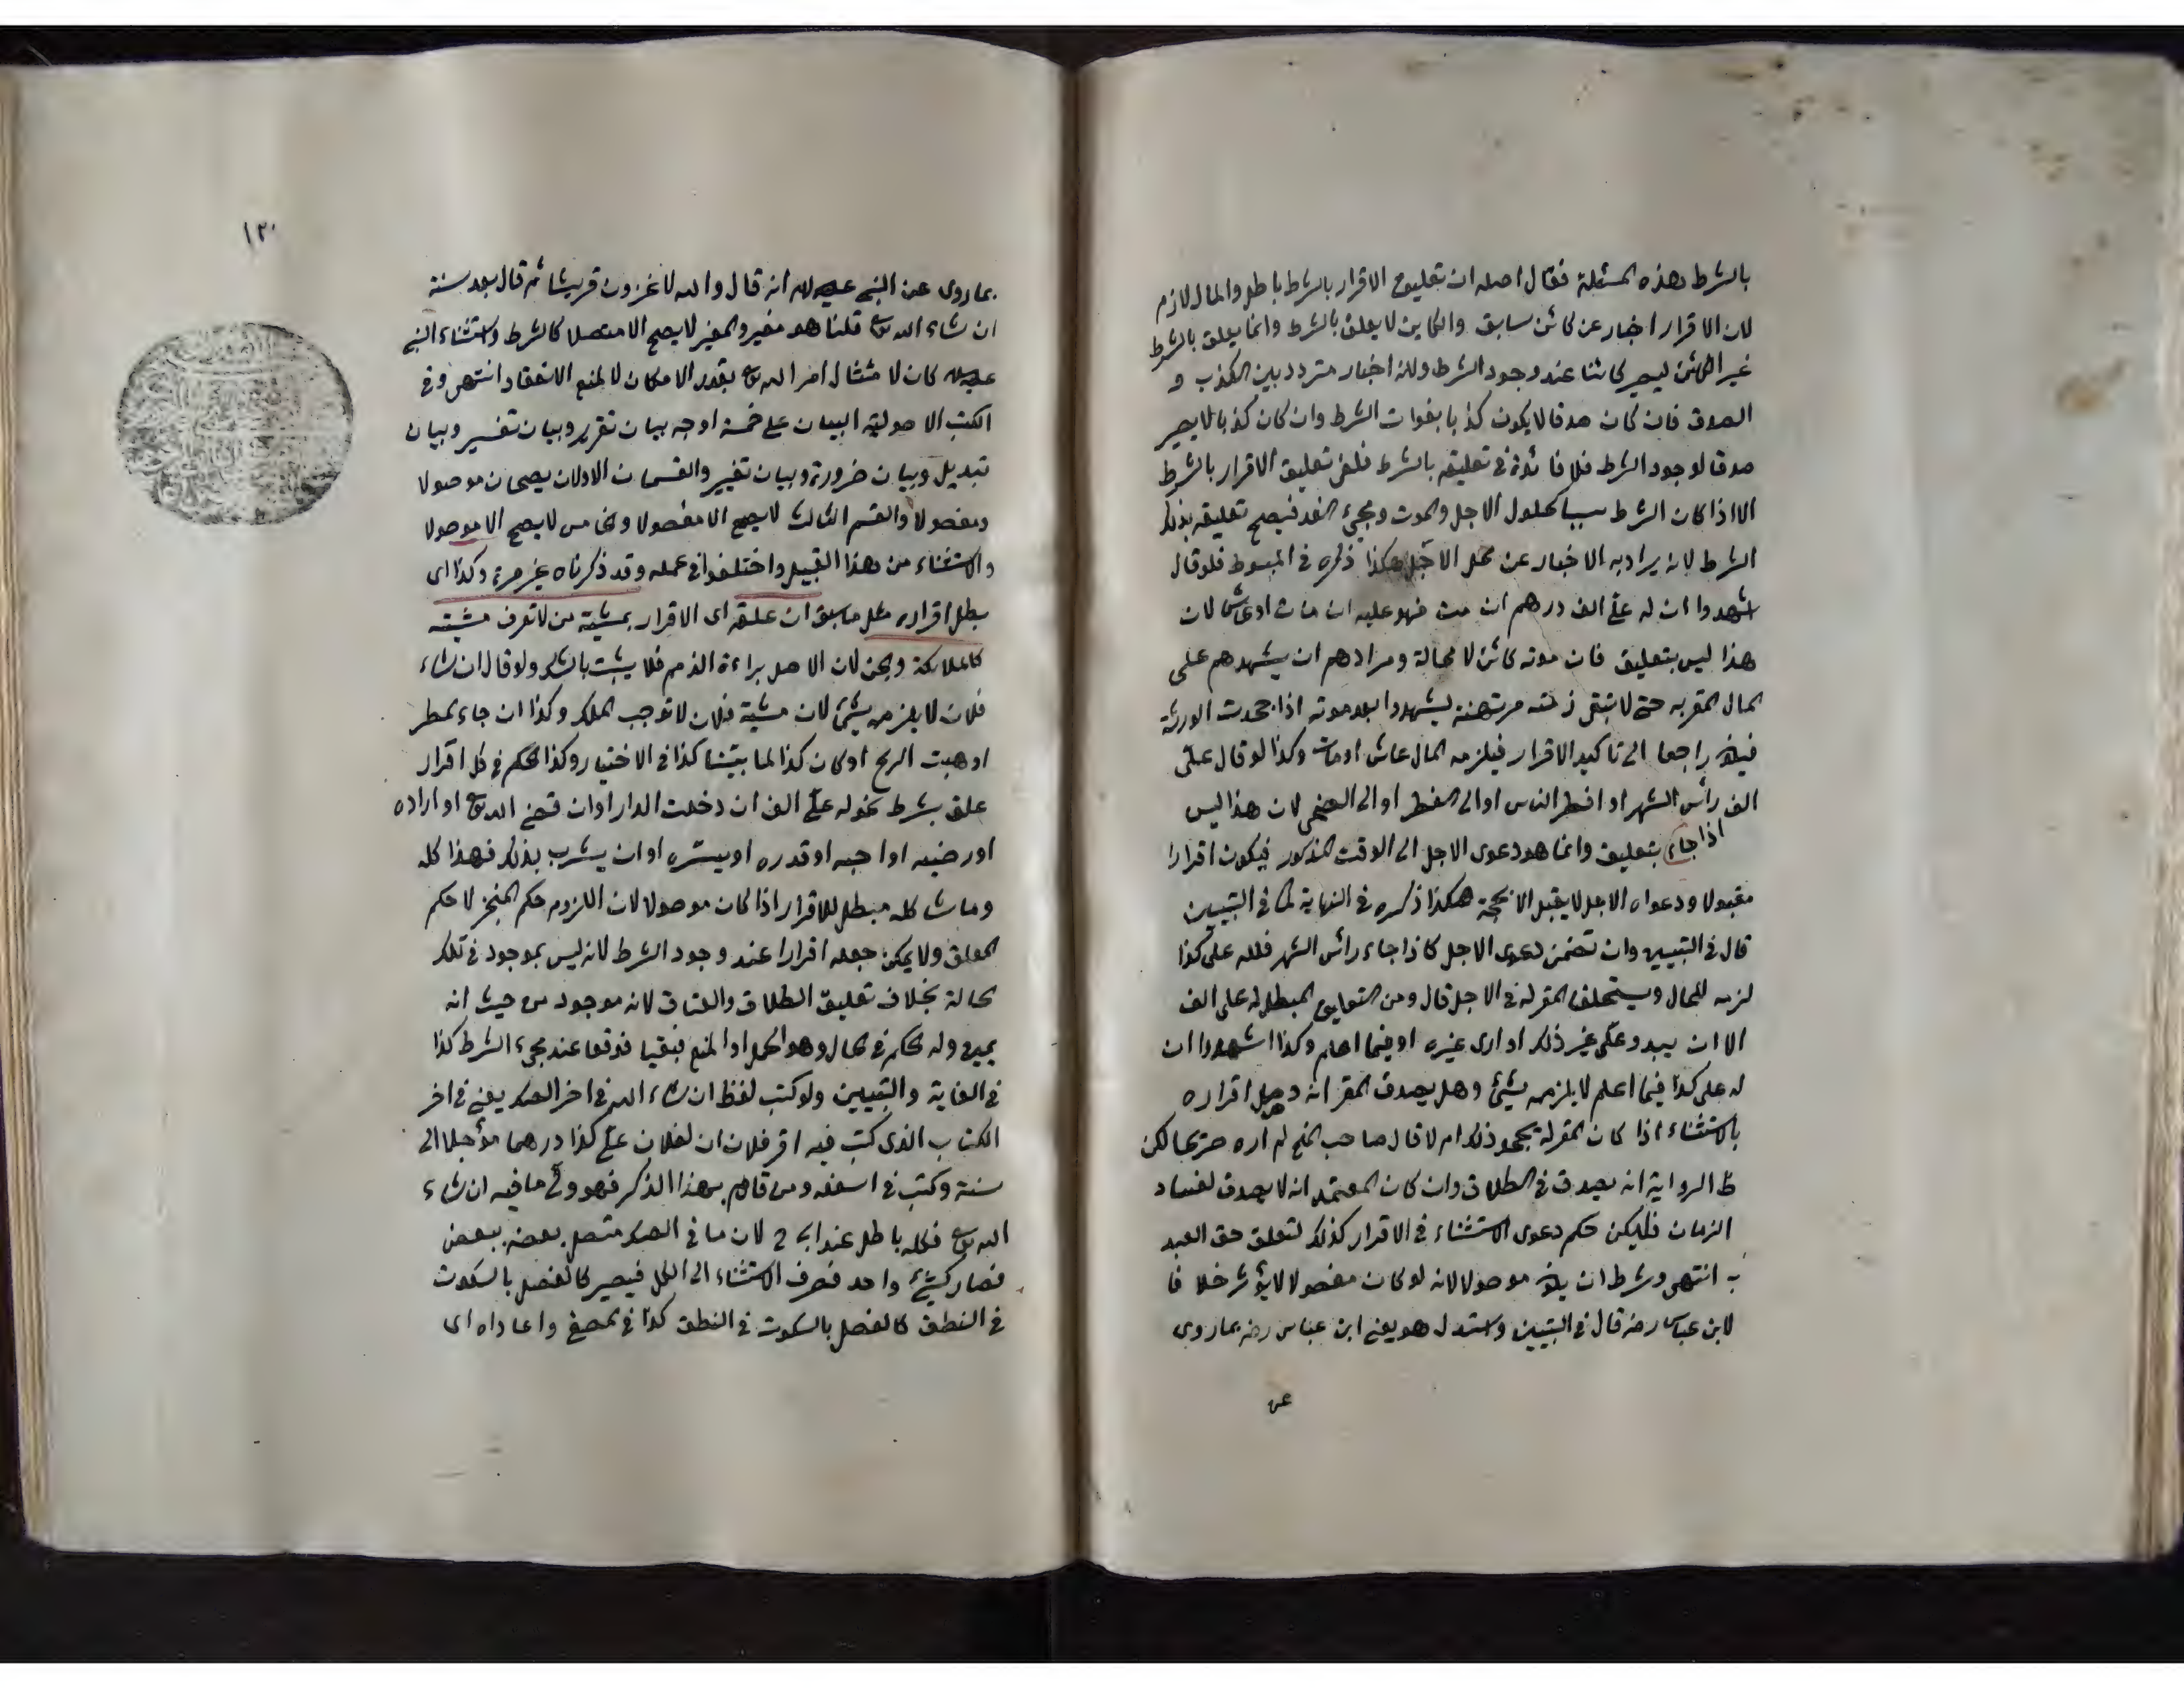 بالشرط هذه المسئلة فقال اصله ان تعليق الاقرار بالشرط باطل والمال لازم
لان الاقرار اخبار عن كائن سابق والكاين لا يعلق بالشرط وانما يعلق بالشرط
غير الكائن ليصير كائنا عند وجود الشرط ولانه اخبار متردد بين الكذب و
الصدق فان كان صدقا لا يكون كذبا بفوات الشرط وان كان كذبا لا يصير
صدقا لوجود الشرط فلا فائدة في تعليقه بالشرط فلغى تعليق الاقرار بالشرط
الا اذا كان الشرط سببا لحلول الاجل والموت ومجيء الغد فيصح تعليقه بذلك
الشرط لانه يراد به الاخبار عن محل الاجل هكذا ذكره في المبسوط فلو قال
اشهدوا ان له علي الف درهم ان مت فهو عليه ان مات او عاش لان
هذا ليس بتعليق فان موته كائن لا محالة ومرادهم ان يشهدهم على
المال المقر به حتى لا تبقى ذمته مرتهنة ليشهدوا بعد موته اذا جحدت الورثة
فيكون راجعا الى تاكيد الاقرار فيلزمه المال عاش او مات وكذا لو قال علي
الف رأس الشهر او افطر الناس او الى الفطر او الى الضحى لان هذا ليس
اذا جاء
بتعليق وانما هو دعوى الاجل الى الوقت المذكور فيكون اقرارا
مقبولا ودعواه الاجل لا يقبل الا بحجة هكذا ذكره في النهاية كما في التبيين
قال في التبيين وان تضمن دعوى الاجل كاذا جاء رأس الشهر فلله علي كذا
لزمه للحال ويستحلف المقر له في الاجل قال ومن التعليق المبطل له على الف
الا ان يبدو على غير ذلك او ارى غيره او فيما اعلم وكذا اشهدوا ان
له على كذا فيما اعلم لا يلزمه شيئ وهل يصدق المقر انه وصل اقراره
بالاستثناء اذا كان المقر له يجحد ذلك ام لا قال صاحب المنح لم اره صريحا لكن
ظ الرواية انه يصدق في الطلاق وان كان المعتمد انه لا يصدق لفساد
الزمان فليكن حكم دعوى الاستثناء في الاقرار كذلك لتعلق حق العبد
به انتهى وشرط ان يكون موصولا لانه لو كان مفصولا لا يؤثر خلافا
لابن عباس رضه قال في التبيين واستدل هو يعني ابن عباس رضه بما روى
عن
١٢٠
بما روى عن النبي عليه السلام انه قال والله لاغزون قريشا ثم قال بعد سنة
ان شاء الله تعالى قلنا هو مغير والمغير لا يصح الا متصلا كالشرط واستثناء النبي
عليه السلام كان لامتثال امر الله تعالى بقدر الامكان لا لمنع الانعقاد انتهى وفي
الكتب الاصولية البيان على خمسة اوجه بيان تقرير وبيان تفسير وبيان
تبديل وبيان ضرورة وبيان تغيير والقسمان الاولان يصحان موصولا
ومفصولا والقسم الثالث لا يصح الا مفصولا والخامس لا يصح الا موصولا
والاستثناء من هذا القبيل واختلفوا في عمله وقد ذكرناه غير مرة وكذا اى
بطل اقراره مثل ما سبق ان علقه اى الاقرار بمشية من لا تعرف مشيته
كالملائكة والجن لان الاصل براءة الذمم فلا يثبت بالشك ولو قال ان شاء
فلان لا يلزمه شيئ لان مشية فلان لا توجب الملك وكذا ان جاء المطر
او هبت الريح او كان كذا لما بيّنا كذا في الاختيار وكذا الحكم في كل اقرار
علق بشرط نحو له علي الف ان دخلت الدار او ان قضى الله تعالى او اراده
او رضيه او احبه او قدره او يسّره او ان يشرب بذلك فهذا كله
وما شاكله مبطل للاقرار اذا كان موصولا لان اللزوم حكم المنجز لا حكم
المعلق ولا يمكن جعله اقرارا عند وجود الشرط لانه ليس بموجود في تلك
الحالة بخلاف تعليق الطلاق والعتاق لانه موجود من حيث انه
يمين وله حكم في الحال وهو الحمل او المنع فبقيا فوقعا عند مجيء الشرط كذا
في الغاية والتبيين ولو كتب لفظ ان شاء الله في اخر الصك يعني في اخر
الكتاب الذى كتب فيه اقر فلان ان لفلان علي كذا درهما مؤجلا الى
سنة وكتب في اسفله ومن قام بهذا الذكر فهو ولي ما فيه ان شاء
الله تعالى فكله باطل عند ابي ح لان ما في الصك متصل بعضه ببعض
فصار كشيئ واحد فصرف الاستثناء الى الكل فيصير كالفصل بالسكوت
في النطق كالفصل بالسكوت في النطق كذا في المصفى واعاداه اى